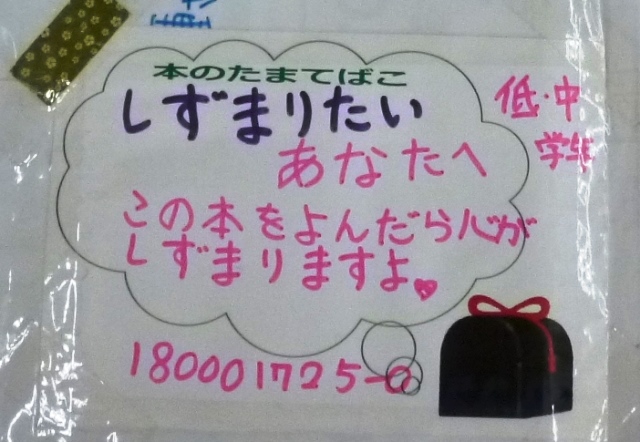 本のたまてばこ
しずまりたい
あなたへ
この本をよんだら心が
しずまりますよ♥
低・中
学年
180001725-0